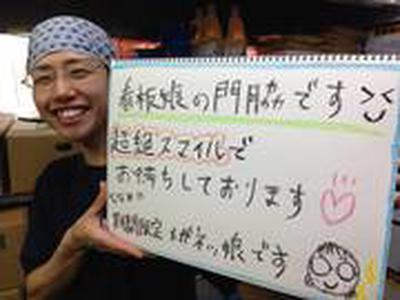 看板娘の門脇です
超絶スマイルで
お待ちしております
ちなみに
メガネっ娘です